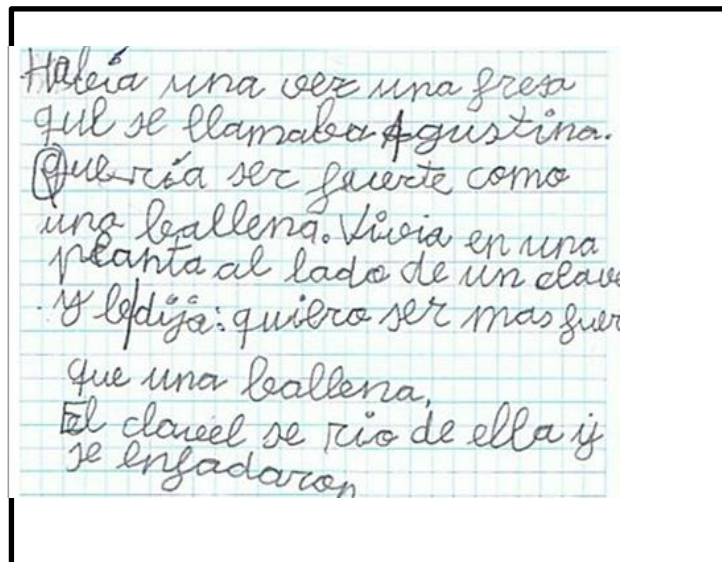 Había una vez una fresa
que se llamaba Agustina.
Quería ser fuerte como
una ballena. Vivia en una
planta al lado de un clave
y le dija: quiero ser mas fuer
que una ballena,
El clavel se rio de ella y
se enfadaron